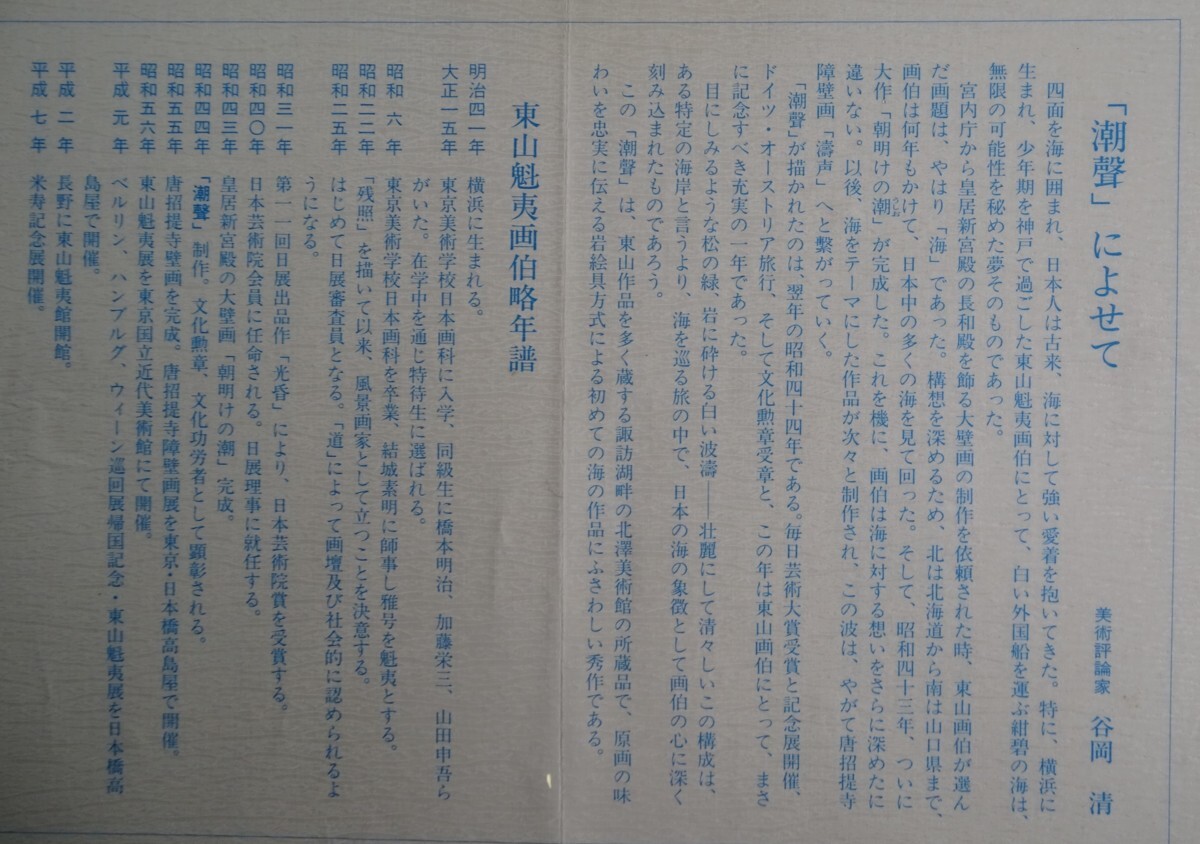 「潮聲」によせて
美術評論家　谷岡　清
四面を海に囲まれ、日本人は古来、海に対して強い愛着を抱いてきた。特に、横浜に
生まれ、少年期を神戸で過ごした東山魁夷画伯にとって、白い外国船を運ぶ紺碧の海は、
無限の可能性を秘めた夢そのものであった。
宮内庁から皇居新宮殿の長和殿を飾る大壁画の制作を依頼された時、東山画伯が選ん
だ画題は、やはり「海」であった。構想を深めるため、北は北海道から南は山口県まで、
画伯は何年もかけて、日本中の多くの海を見て回った。そして、昭和四十三年、ついに
大作「朝明けの潮」が完成した。これを機に、画伯は海に対する想いをさらに深めたに
違いない。以後、海をテーマにした作品が次々と制作され、この波は、やがて唐招提寺
障壁画「濤声」へと繋がっていく。
「潮聲」が描かれたのは、翌年の昭和四十四年である。毎日芸術大賞受賞と記念展開催、
ドイツ・オーストリア旅行、そして文化勲章受章と、この年は東山画伯にとって、まさ
に記念すべき充実の一年であった。
目にしみるような松の緑、岩に砕ける白い波濤――壮麗にして清々しいこの構成は、
ある特定の海岸と言うより、海を巡る旅の中で、日本の海の象徴として画伯の心に深く
刻み込まれたものであろう。
この「潮聲」は、東山作品を多く蔵する諏訪湖畔の北澤美術館の所蔵品で、原画の味
わいを忠実に伝える岩絵具方式による初めての海の作品にふさわしい秀作である。
東山魁夷画伯略年譜
明治四一年　横浜に生まれる。
大正一五年　東京美術学校日本画科に入学、同級生に橋本明治、加藤栄三、山田申吾ら
がいた。在学中を通じ特待生に選ばれる。
昭和　六　年　東京美術学校日本画科を卒業、結城素明に師事し雅号を魁夷とする。
昭和二二年　「残照」を描いて以来、風景画家として立つことを決意する。
昭和二五年　はじめて日展審査員となる。「道」によって画壇及び社会的に認められるよ
うになる。
昭和三一年　第一一回日展出品作「光昏」により、日本芸術院賞を受賞する。
昭和四〇年　日本芸術院会員に任命される。日展理事に就任する。
昭和四三年　皇居新宮殿の大壁画「朝明けの潮」完成。
昭和四四年　「潮聲」制作。文化勲章、文化功労者として顕彰される。
昭和五五年　唐招提寺壁画を完成。唐招提寺障壁画展を東京・日本橋高島屋で開催。
昭和五六年　東山魁夷展を東京国立近代美術館にて開催。
平成　元　年　ベルリン、ハンブルグ、ウィーン巡回展帰国記念・東山魁夷展を日本橋高
島屋で開催。
平成　二　年　長野に東山魁夷館開館。
平成　七　年　米寿記念展開催。